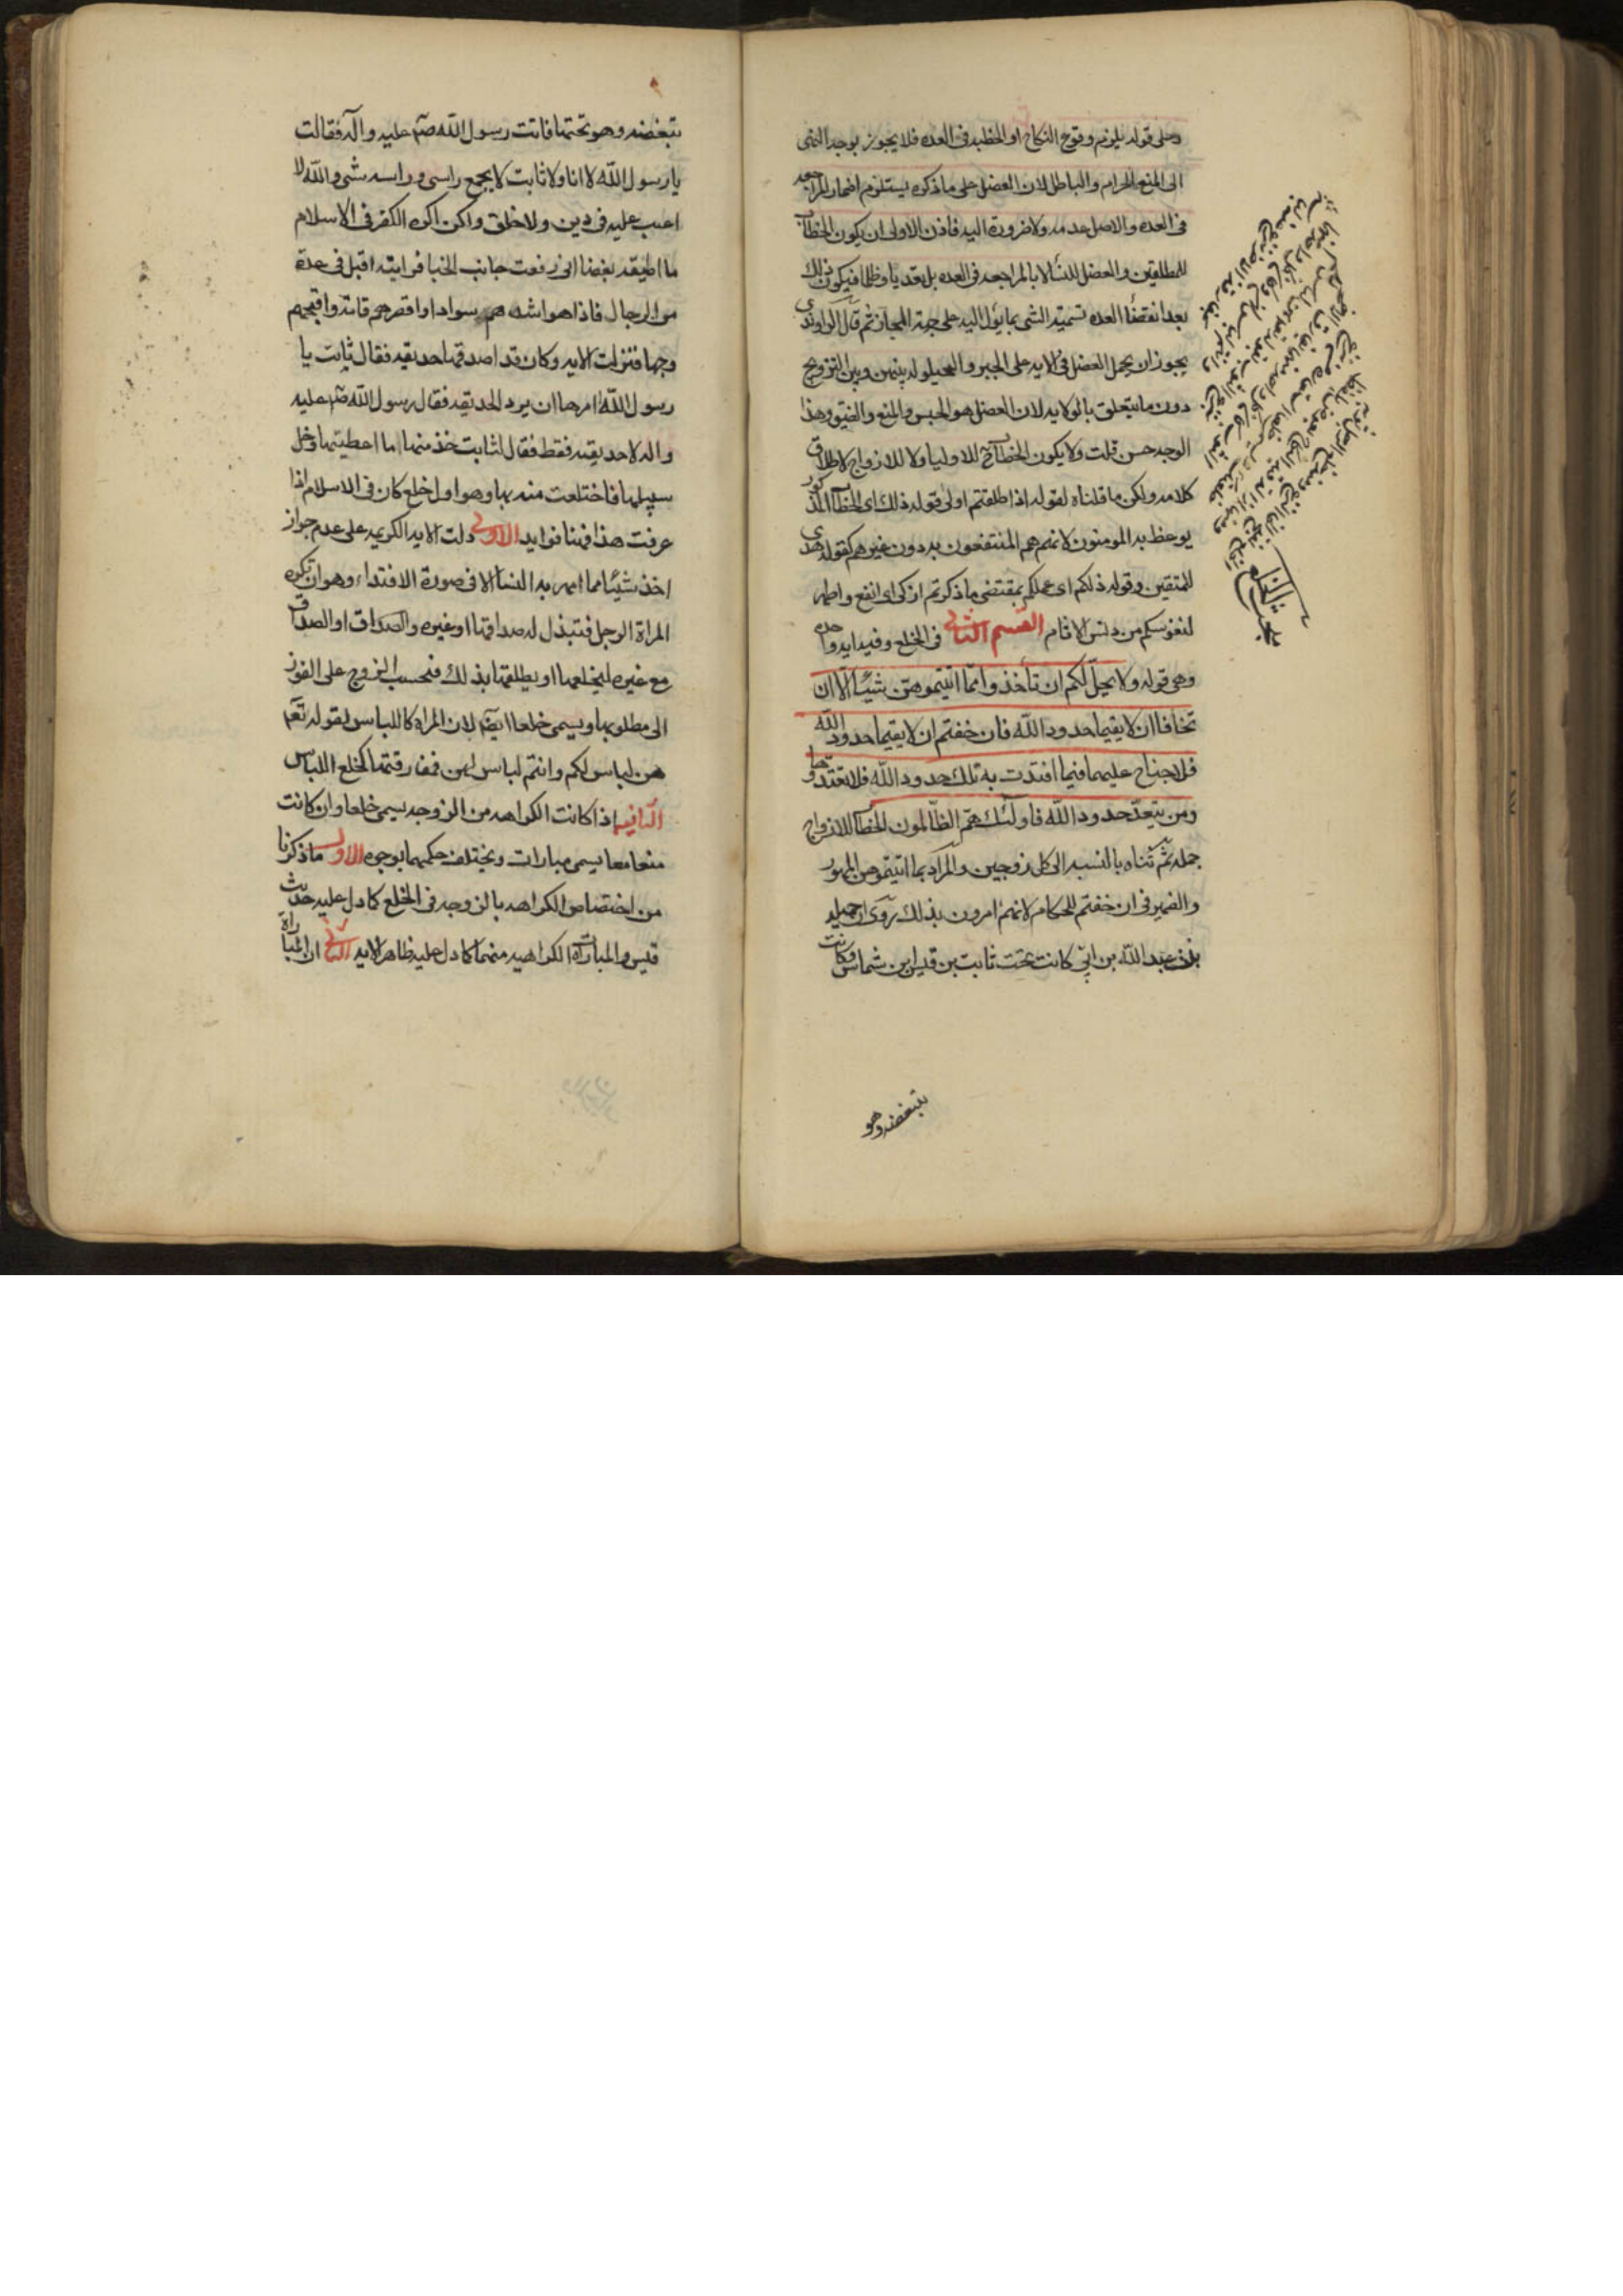 وعلى قوله يلزم وقوع النكاح او الخطبه فى العده فلا يجوز بوجه النهى
الى المنع الحرام والباطل لان العضل على ما ذكره يستلزم اضمار المراجعه
فى العده والاصل عدمه ولا ضرورة اليه فاذن الاولى ان يكون الخطاب
للمطلقين والعضل للنسا لا بالمراجعه فى العده بل تعديا وظلما فيكون ذلك
بعد انقضا العده تسمية الشى بما يؤل اليه على جهة المجاز ثم قال الراوندى
يجوز ان يحمل العضل فى الايه على الجبر والحيلوله بينهن وبين التزويج
دون ما يتعلق بالولايه لان العضل هو الحبس والمنع والضيق وهذا
الوجه حسن قلت ولا يكون الخطاب ح للاوليا ولا للازواج لاطلاق
كلامه ولكن ما قلناه لقوله اذا طلقتم اولى قوله ذلك اى الخطاب المذكور
يوعظ به المومنون لانهم هم المنتفعون به دون غيرهم كقوله هدى
للمتقين وقوله ذلكم اى عملكم بمقتضى ما ذكرتم ازكى اى انفع واطهر
لنفوسكم من دنس الاثام القسم الثانى فى الخلع وفيه ايه واحده
وهى قوله ولا يحلّ لكم ان تأخذوا ممّا اتيتموهنّ شيئا الّا ان
تخافا ان لا يقيما حدود الله فان خفتم ان لا يقيما حدود الله
فلا جناح عليهما فيما افتدت به تلك حدود الله فلا تعتدوها
ومن يتعدّ حدود الله فاولئك هم الظالمون الخطاب للازواج
جمله ثم ثناه بالنسبه الى كل زوجين والمراد بما اتيتموهن المهور
والضمير فى ان خفتم للحكام لانهم امرون بذلك روى ان جميله
بنت عبد الله بن ابىّ كانت تحت ثابت بن قيس بن شماس وكانت
تبغضه وهو
تبغضه وهو يحتها فاتت رسول الله صم عليه واله فقالت
يا رسول الله لا انا ولا ثابت لا يجمع راسى وراسه شى والله لا
اعيب عليه فى دين ولا خلق ولكن اكره الكفر فى الاسلام
ما اطيقه بغضا انى رفعت جانب الخبا فرايته اقبل فى عدة
من الرجال فاذا هو اشدهم سوادا واقصرهم قامة واقبحهم
وجها فنزلت الايه وكان قد اصدقها حديقه فقال ثابت يا
رسول الله امرها ان يرد الحديقه فقال رسول الله صم عليه
واله لا حديقته فقط فقال لثابت خذ منها ما اعطيتها وخل
سبيلها فاختلعت منه بها وهو اول خلع كان فى الاسلام اذا
عرفت هذا فهنا فوايد الاولى دلت الايه الكريمه على عدم جواز
اخذ شيئا مما امهر به النسا الا فى صورة الافتداء وهو ان تكره
المراة الرجل فتبذل له صداقها او غيره والصداق او الصداق
مع غيره ليخلعها او يطلقها بذلك فتحسب الزوج على الفوز
الى مطلوبها ويسمى خلعا ايضا لان المراه كاللباس لقوله تعم
هن لباس لكم وانتم لباس لهن فمفارقتها كخلع اللباس
الثانيه اذا كانت الكراهه من الزوجه يسمى خلعا وان كانت
منهما معا يسمى مبارات ويختلف حكمهما بوجوه الاول ما ذكرنا
من اختصاص الكراهه بالزوجه فى الخلع كما دل عليه حديث
قيس والمباراة الكراهيه منهما كما دل عليه ظاهر الايه الثانى ان المباراة